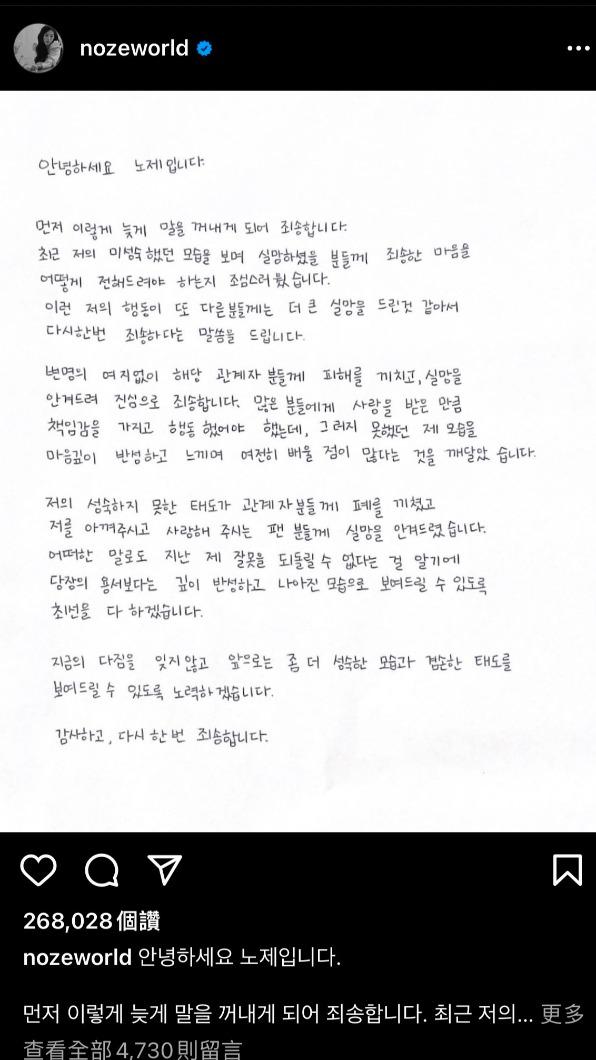 nozeworld
안녕하세요 노제입니다.
먼저 이렇게 늦게 말을 꺼내게 되어 죄송합니다.
최근 저의 미성숙했던 모습을 보며 실망하셨을 분들께 죄송한 마음을
어떻게 전해드려야 하는지 조심스러웠습니다.
이런 저의 행동이 또 다른분들께는 더 큰 실망을 드린것 같아서
다시한번 죄송하다는 말씀을 드립니다.
변명의 여지없이 해당 관계자 분들께 피해를 끼치고, 실망을
안겨드려 진심으로 죄송합니다. 많은 분들에게 사랑을 받은 만큼
책임감을 가지고 행동 했어야 했는데, 그러지 못했던 제 모습을
마음깊이 반성하고 느끼며 여전히 배울 점이 많다는 것을 깨달았 습니다.
저의 성숙하지 못한 태도가 관계자분들께 폐를 끼쳤고
저를 아껴주시고 사랑해 주시는 팬 분들께 실망을 안겨드렸습니다.
어떠한 말로도 지난 제 잘못을 되돌릴 수 없다는 걸 알기에
당장의 용서보다는 깊이 반성하고 나아진 모습으로 보여드릴 수 있도록
최선을 다 하겠습니다.
지금의 다짐을 잊지않고 앞으로는 좀 더 성숙한 모습과 겸손한 태도를
보여드릴 수 있도록 노력하겠습니다.
감사하고, 다시 한번 죄송합니다.
268,028 個讚
nozeworld 안녕하세요 노제입니다.
먼저 이렇게 늦게 말을 꺼내게 되어 죄송합니다. 최근 저의... 更多
查看全部 4,730 則留言